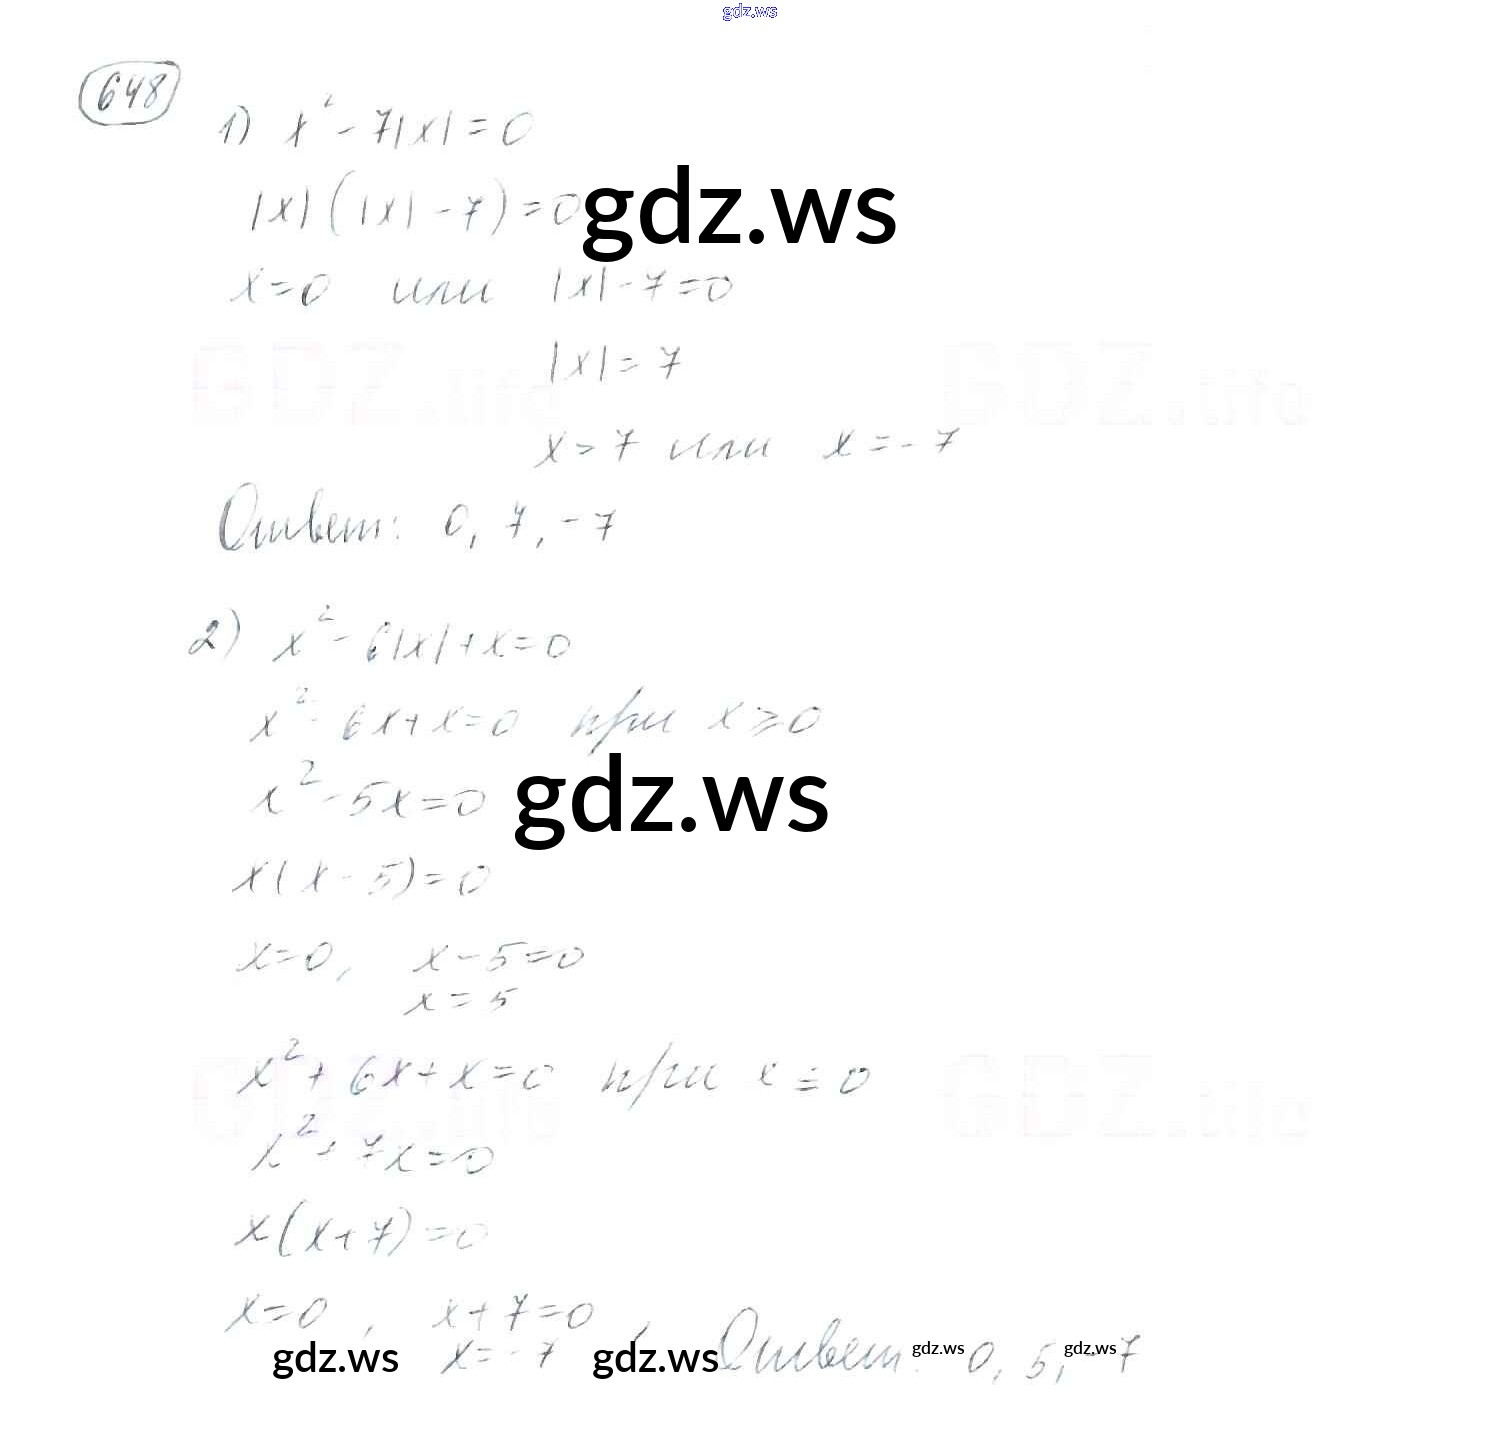 gdz.ws
648
1) x² - 7|x| = 0
|x| (|x| - 7) = 0
gdz.ws
x = 0 или |x| - 7 = 0
|x| = 7
GDZ.life GDZ.life
x = 7 или x = - 7
Ответ: 0, 7, - 7
2) x² - 6|x| + x = 0
x² - 6x + x = 0 при x ⩾ 0
x² - 5x = 0
gdz.ws
x(x - 5) = 0
x = 0, x - 5 = 0
x = 5
x² + 6x + x = 0 при x ≤ 0
GDZ.life GDZ.life
x² + 7x = 0
x(x + 7) = 0
x = 0, x + 7 = 0,
gdz.ws x = - 7 gdz.ws Ответ: gdz.ws 0, 5, gdz.ws -7